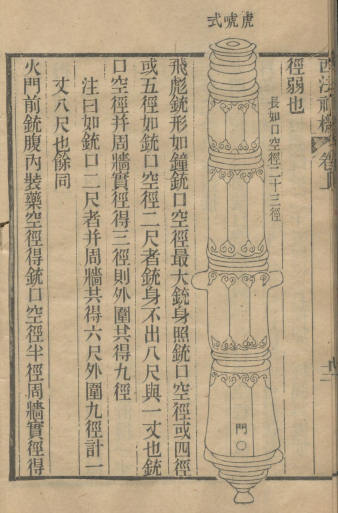 虎唬式
徑弱也
長如口空徑二十三徑
門
飛彪銃形如鐘銃口空徑最大銃身照銃口空徑或四徑
或五徑如銃口空徑二尺者銃身不出八尺與一丈也銃
口空徑并周牆實徑得三徑則外圍其得九徑
注曰如銃口二尺者并周牆共得六尺外圍九徑計一
丈八尺也餘同
火門前銃腹內裝藥空徑得銃口空徑半徑周牆實徑得